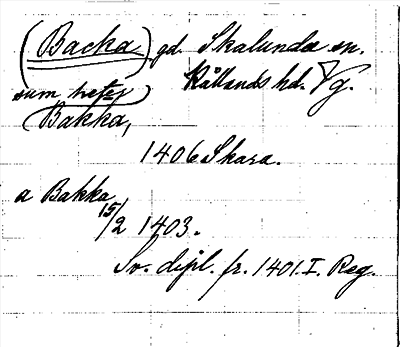 (Backa) gd. Skalunda sn.
sum heter Kållands hd. Vg.
Bakka,
1406 Skara.
a Bakka
15/2 1403.
Sv. dipl. fr. 1401. I. Reg.